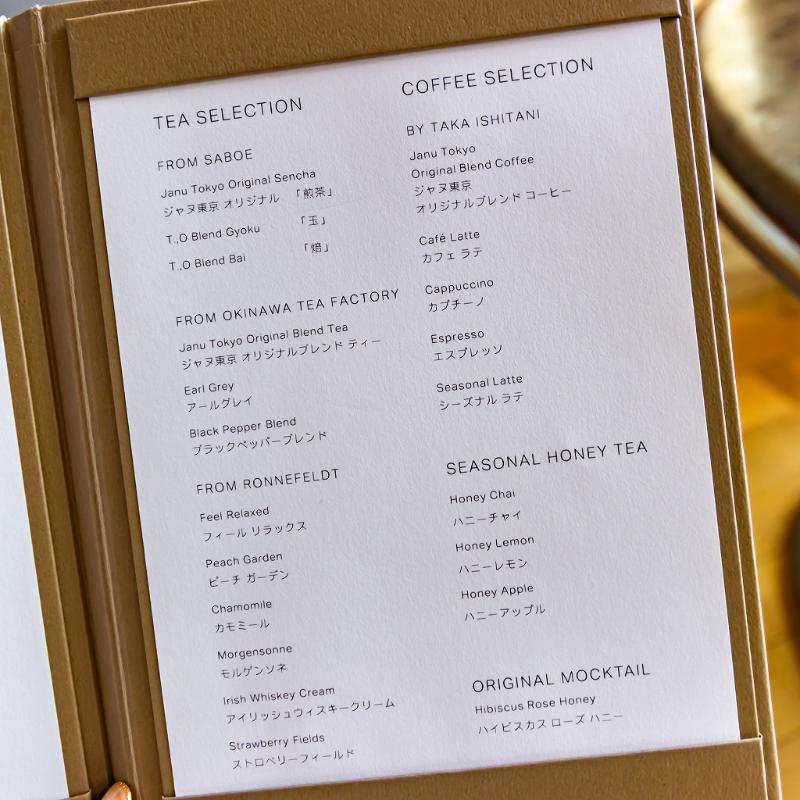 TEA SELECTION
FROM SABOE
Janu Tokyo Original Sencha
ジャヌ東京 オリジナル 「煎茶」
T.,O Blend Gyoku 「玉」
T.,O Blend Bai 「焙」
FROM OKINAWA TEA FACTORY
Janu Tokyo Original Blend Tea
ジャヌ東京 オリジナルブレンド ティー
Earl Grey
アールグレイ
Black Pepper Blend
ブラックペッパーブレンド
FROM RONNEFELDT
Feel Relaxed
フィール リラックス
Peach Garden
ピーチ ガーデン
Chamomile
カモミール
Morgensonne
モルゲンソネ
Irish Whiskey Cream
アイリッシュウィスキークリーム
Strawberry Fields
ストロベリーフィールド
COFFEE SELECTION
BY TAKA ISHITANI
Janu Tokyo
Original Blend Coffee
ジャヌ東京
オリジナルブレンド コーヒー
Café Latte
カフェ ラテ
Cappuccino
カプチーノ
Espresso
エスプレッソ
Seasonal Latte
シーズナル ラテ
SEASONAL HONEY TEA
Honey Chai
ハニーチャイ
Honey Lemon
ハニーレモン
Honey Apple
ハニーアップル
ORIGINAL MOCKTAIL
Hibiscus Rose Honey
ハイビスカス ローズ ハニー